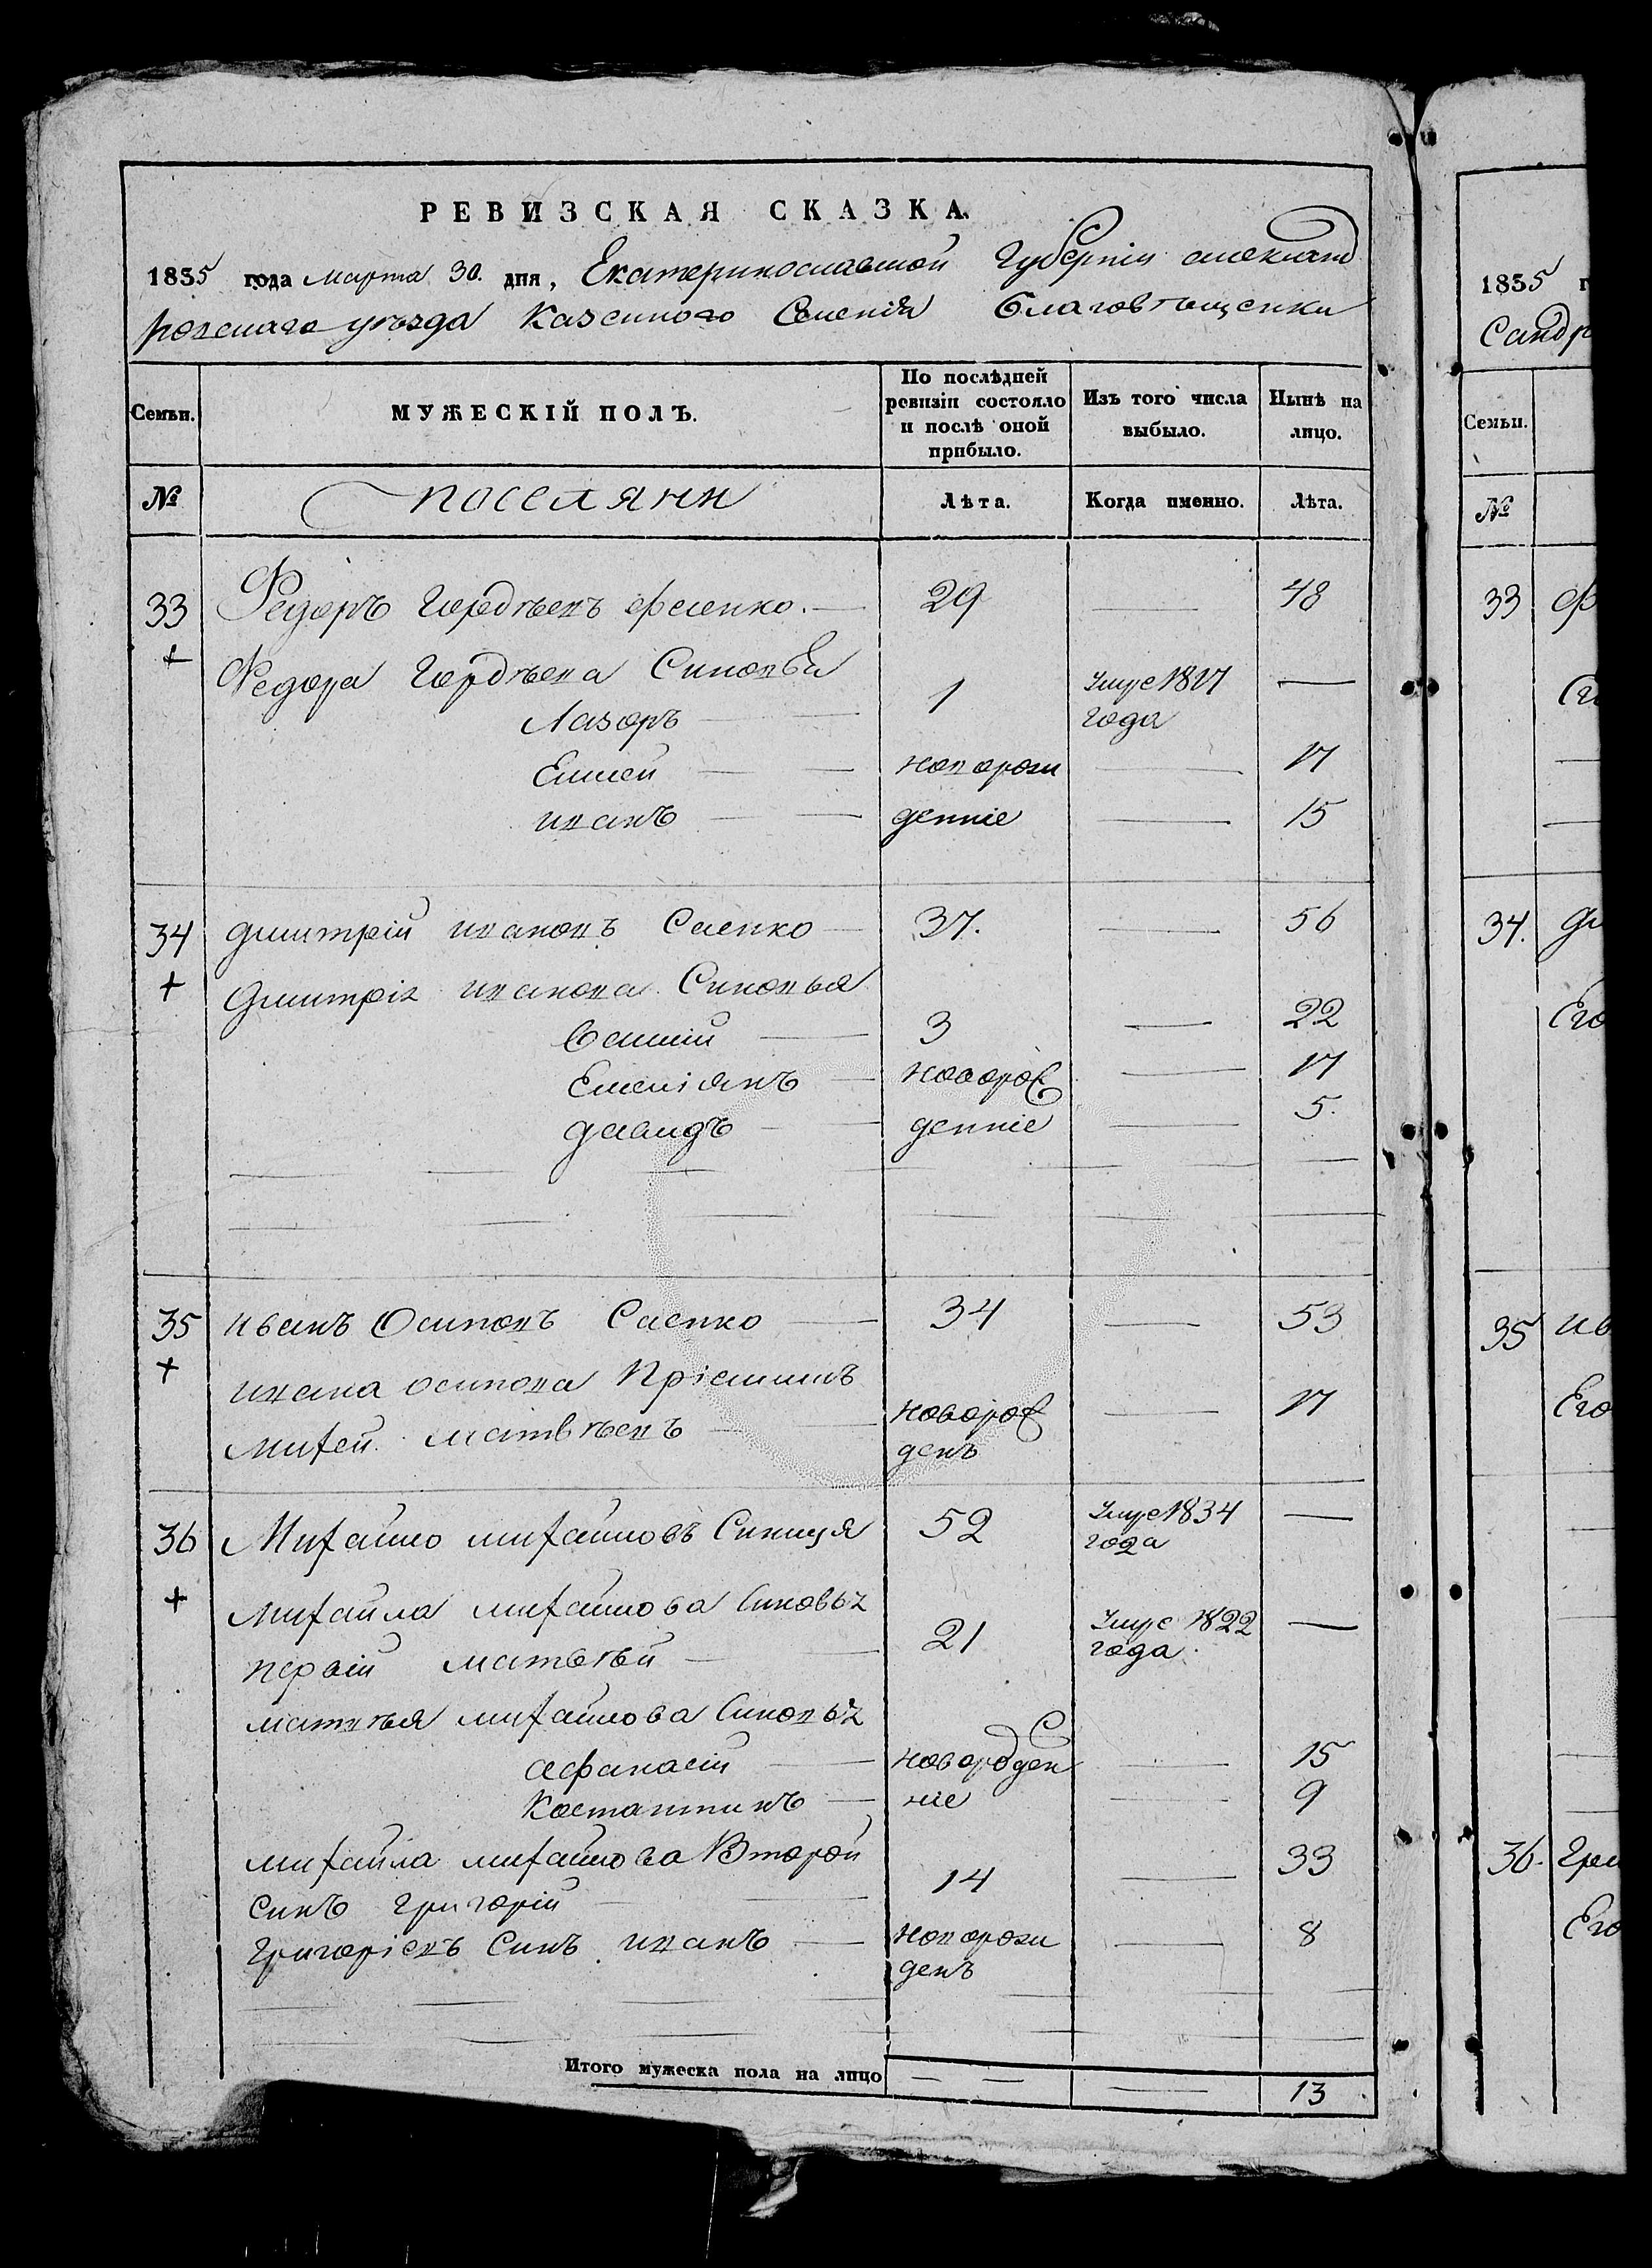 РЕВИЗСКАЯ СКАЗКА.
1835 года марта 30. дня, Екатеринославской Губерніи александ
ровскаго уѣзда Казенного Селенія Благовѣщенки
Семьи. МУЖЕСКІЙ ПОЛЪ. По послѣдней ревизіи состояло и послѣ оной прибыло. Изъ того числа выбыло. Нынѣ на лицо.
№ поселяне Лѣта. Когда именно. Лѣта.
33 Федоръ Гордѣевъ 29 — 48
+ Федора Гордѣева Синовья
Лазоръ 1 Умре 1817 года —
Елисей новорож 17
иванъ денние 15
34 дмитрій ивановъ Саенко 37. — 56
+ Дмитрія иванова Синовья
Василій 3 — 22
Емеліянъ новорож — 17
давидъ денние — 5.
35 иванъ Осиповъ Саенко 34 — 53
+ ивана осипова Пріемишъ
михей матвѣевъ новорож — 17
денъ
36 Михайло михайловъ Синиця 52 Умре 1834 года —
+ Михайла михайлова Синовья
первій матвѣй 21 Умре 1822 года. —
матвѣя михайлова Синовья
афанасій новорожден — 15
Костантинъ ніе — 9
михайла михайлова Второй
синъ григорій 14 — 33
григоріевъ Синъ иванъ новорож — 8
денъ
Итого мужеска пола на лицо — — — 13
1835 г
Сандр
Семьи.
№
33 Ф
34. Дм
Его
35 ив
Его
36.
Его